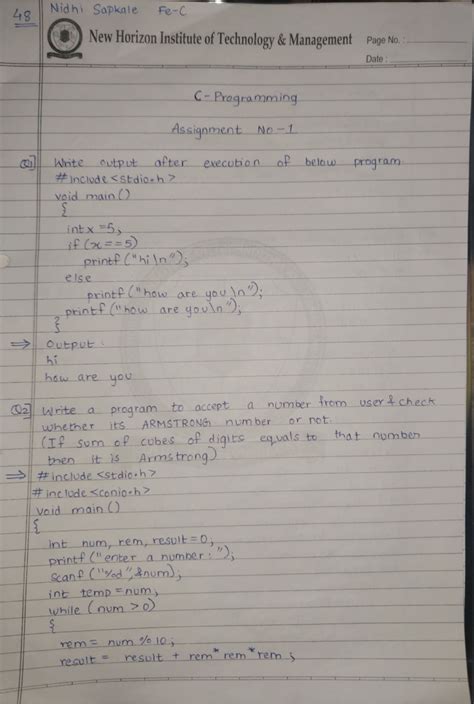 48
Nidhi Sapkale Fe-C
New Horizon Institute of Technology & Management
Page No. :
Date :
C-Programming
Assignment No-1
Q1] Write output after execution of below program
#include <stdio.h>
void main()
{
int x =5;
if (x==5)
printf ("hi \n");
else
printf ("how are you \n");
printf ("how are you\n");
}
⇒ Output :
hi
how are you
Q2] Write a program to accept a number from user & check
whether its ARMSTRONG number or not.
(If sum of cubes of digits equals to that number
then it is Armstrong)
⇒ #include <stdio.h>
#include <conio.h>
void main ()
{
int num, rem, result = 0;
printf ("enter a number : ");
scanf ("%d", &num);
int temp = num;
while (num > 0)
{
rem = num % 10;
result = result + rem * rem * rem ;